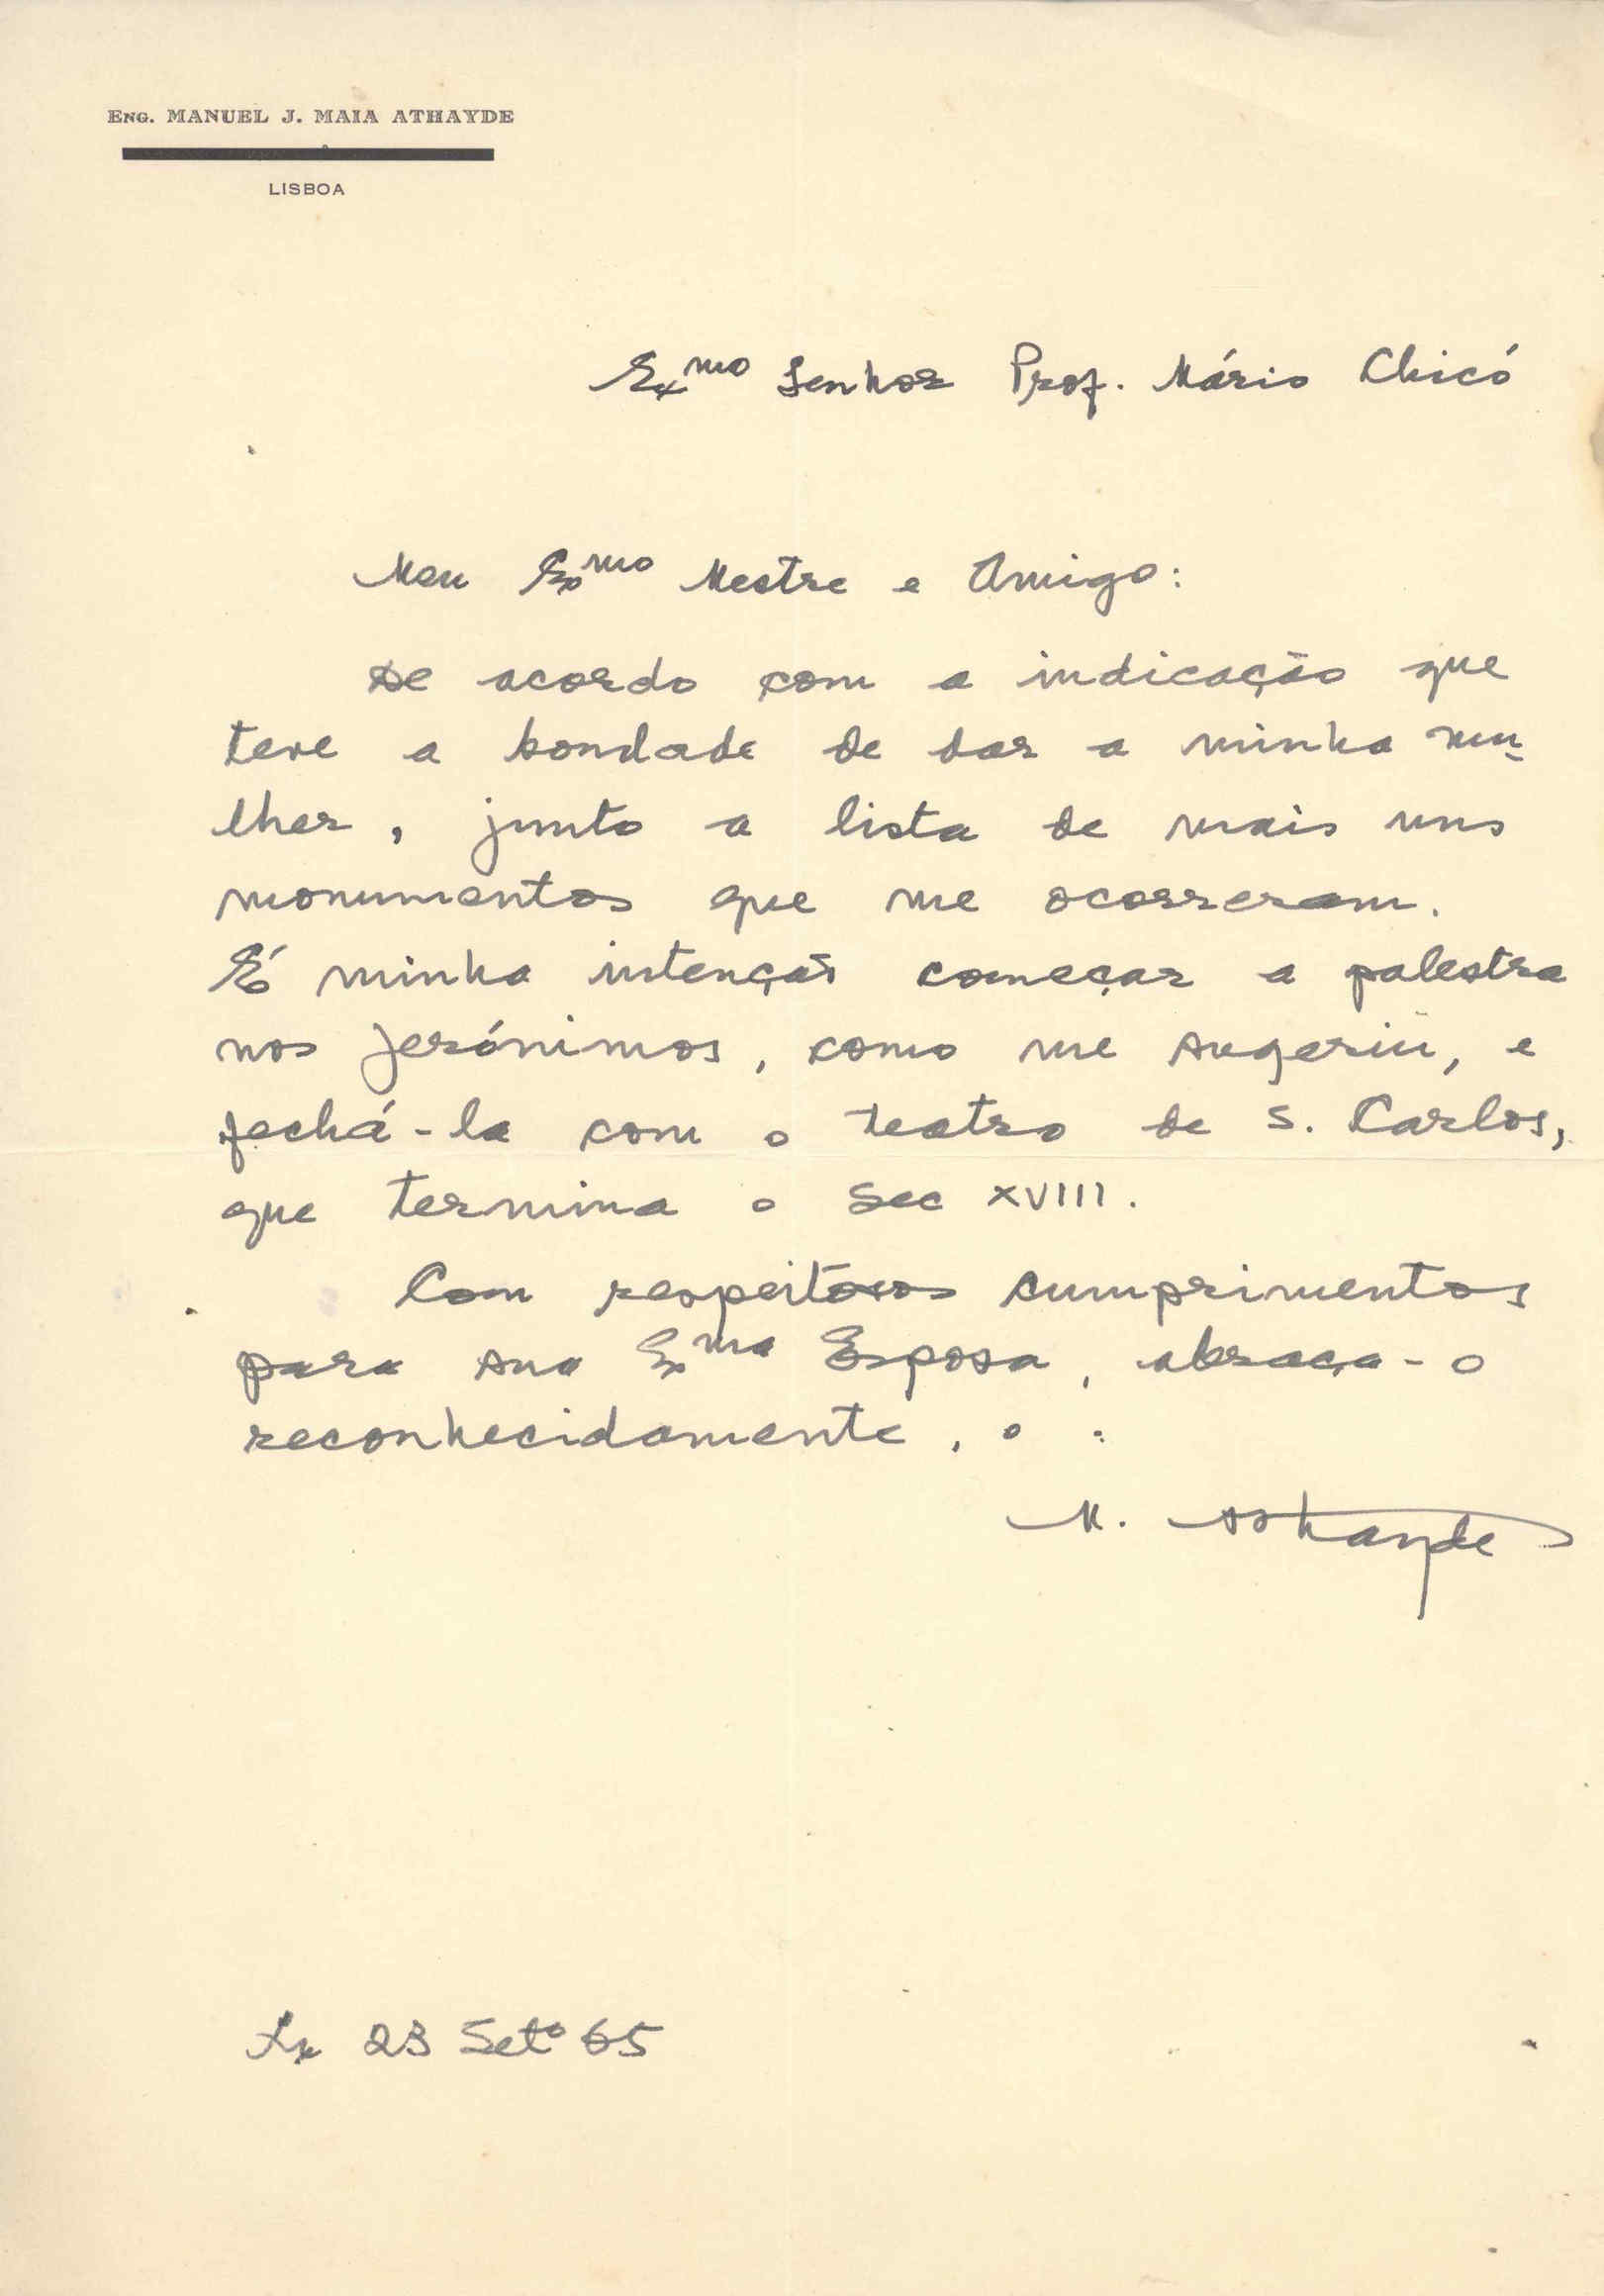 ENG. MANUEL J. MAIA ATHAYDE
LISBOA
Exmo Senhor Prof. Mário Chicó
Meu Exmo Mestre e Amigo:
De acordo com a indicação que
teve a bondade de dar a minha mu-
lher, junto a lista de mais uns
monumentos que me ocorreram.
É minha intenção começar a palestra
nos Jerónimos, como me sugeriu, e
fechá-la com o teatro de S. Carlos,
que termina o Sec XVIII.
Com respeitosos cumprimentos
para sua Exma Esposa, abraça-o
reconhecidamente, o :
M. Athayde
Lx 23 Setº 65